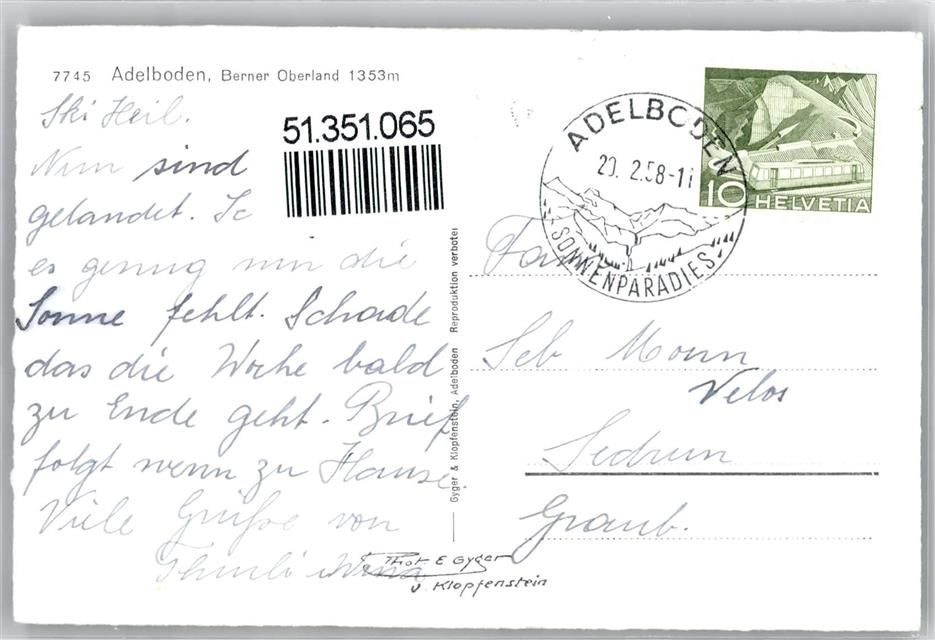 7745 Adelboden, Berner Oberland 1353m
Ski Heil.
51.351.065
Nun sind
gelandet.
es genug nur die
Sonne fehlt. Schade
das die Woche bald
zu Ende geht. Brief
folgt wenn zu Hause.
Viele Grüsse von
Gyger & Klopfenstein, Adelboden Reproduktion verboten
Phot. E Gyger
u. Klopfenstein
ADELBODEN
20.2.58-11
SONNENPARADIES
10 HELVETIA
Fam
Seb
Velos
Sedrun
Graub.